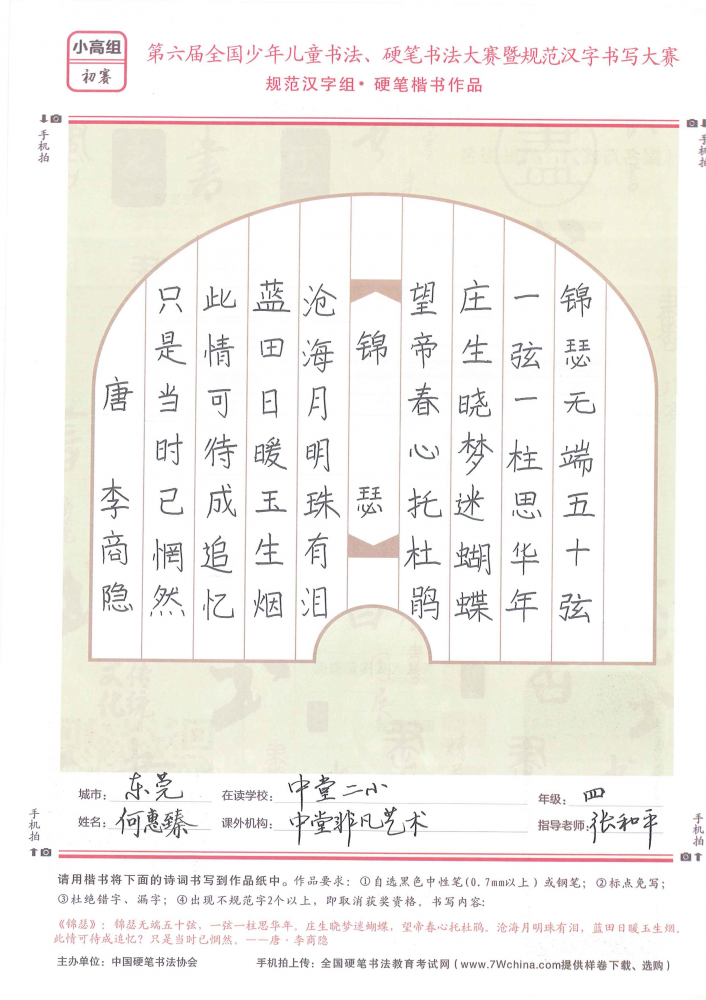 小高组
初赛
第六届全国少年儿童书法、硬笔书法大赛暨规范汉字书写大赛
规范汉字组·硬笔楷书作品
手机拍
手机拍
锦瑟无端五十弦
一弦一柱思华年
庄生晓梦迷蝴蝶
望帝春心托杜鹃
锦瑟
沧海月明珠有泪
蓝田日暖玉生烟
此情可待成追忆
只是当时已惘然
唐 李商隐
城市：东莞 在读学校：中堂二小 年级：四
姓名：何惠臻 课外机构：中堂非凡艺术 指导老师：张和平
手机拍
手机拍
请用楷书将下面的诗词书写到作品纸中。作品要求：①自选黑色中性笔(0.7mm以上）或钢笔；②标点免写；
③杜绝错字、漏字；④出现不规范字2个以上，即取消获奖资格。书写内容：
《锦瑟》：锦瑟无端五十弦，一弦一柱思华年。庄生晓梦迷蝴蝶，望帝春心托杜鹃。沧海月明珠有泪，蓝田日暖玉生烟。
此情可待成追忆？只是当时已惘然。——唐·李商隐
主办单位：中国硬笔书法协会 手机拍上传：全国硬笔书法教育考试网（www.7Wchina.com提供样卷下载、选购）